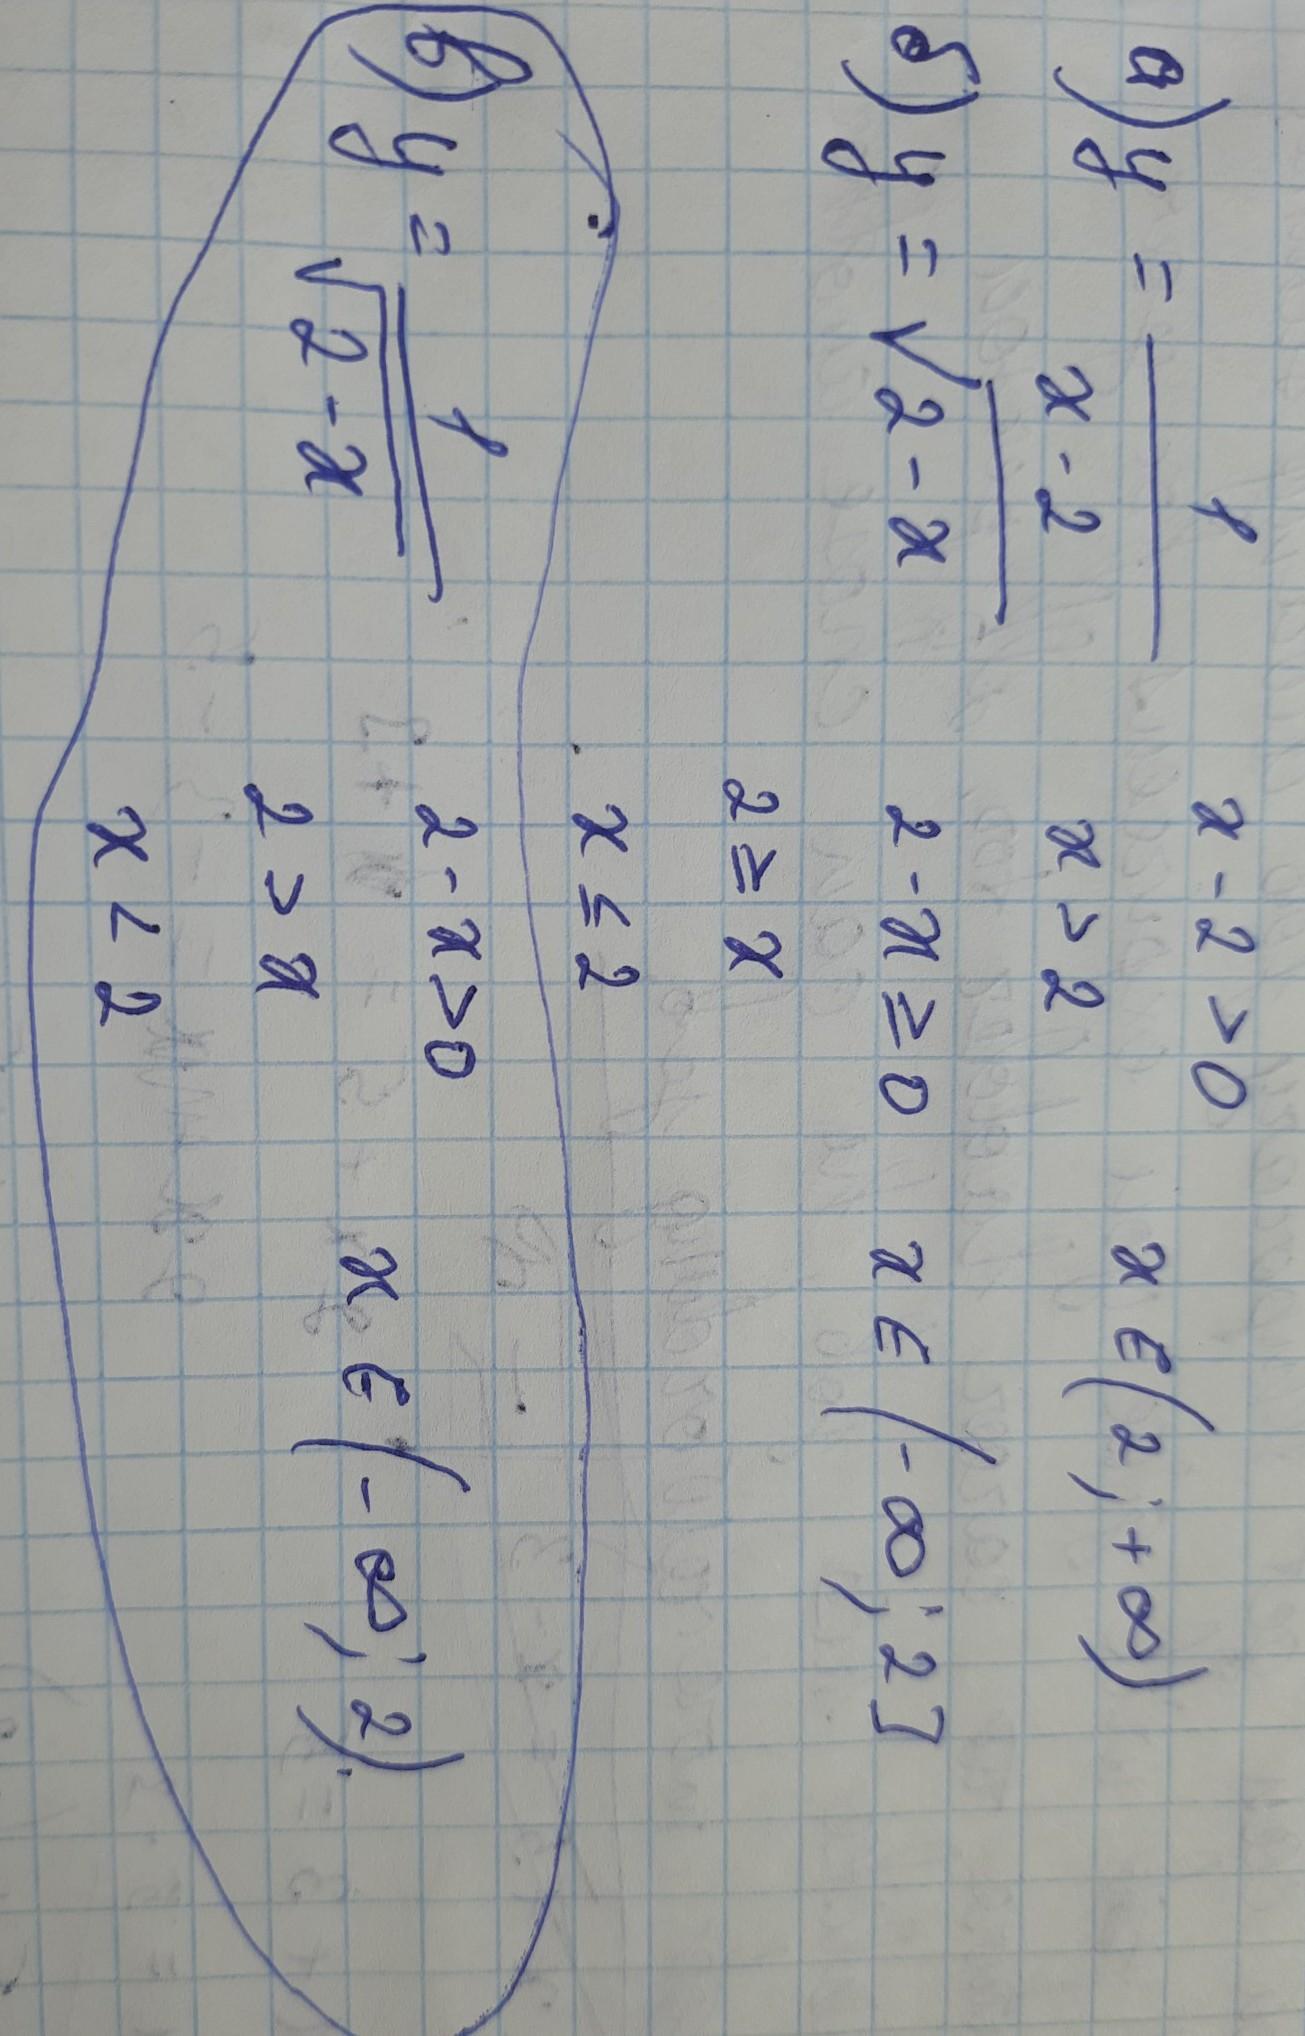 а) y = 1 / x - 2    x - 2 > 0    x ∈ (2; +∞)
x > 2
б) y = √2 - x    2 - x ≥ 0    x ∈ (-∞; 2]
2 ≥ x
x ≤ 2
в) y = 1 / √2 - x    2 - x > 0    x ∈ (-∞; 2)
2 > x
x < 2